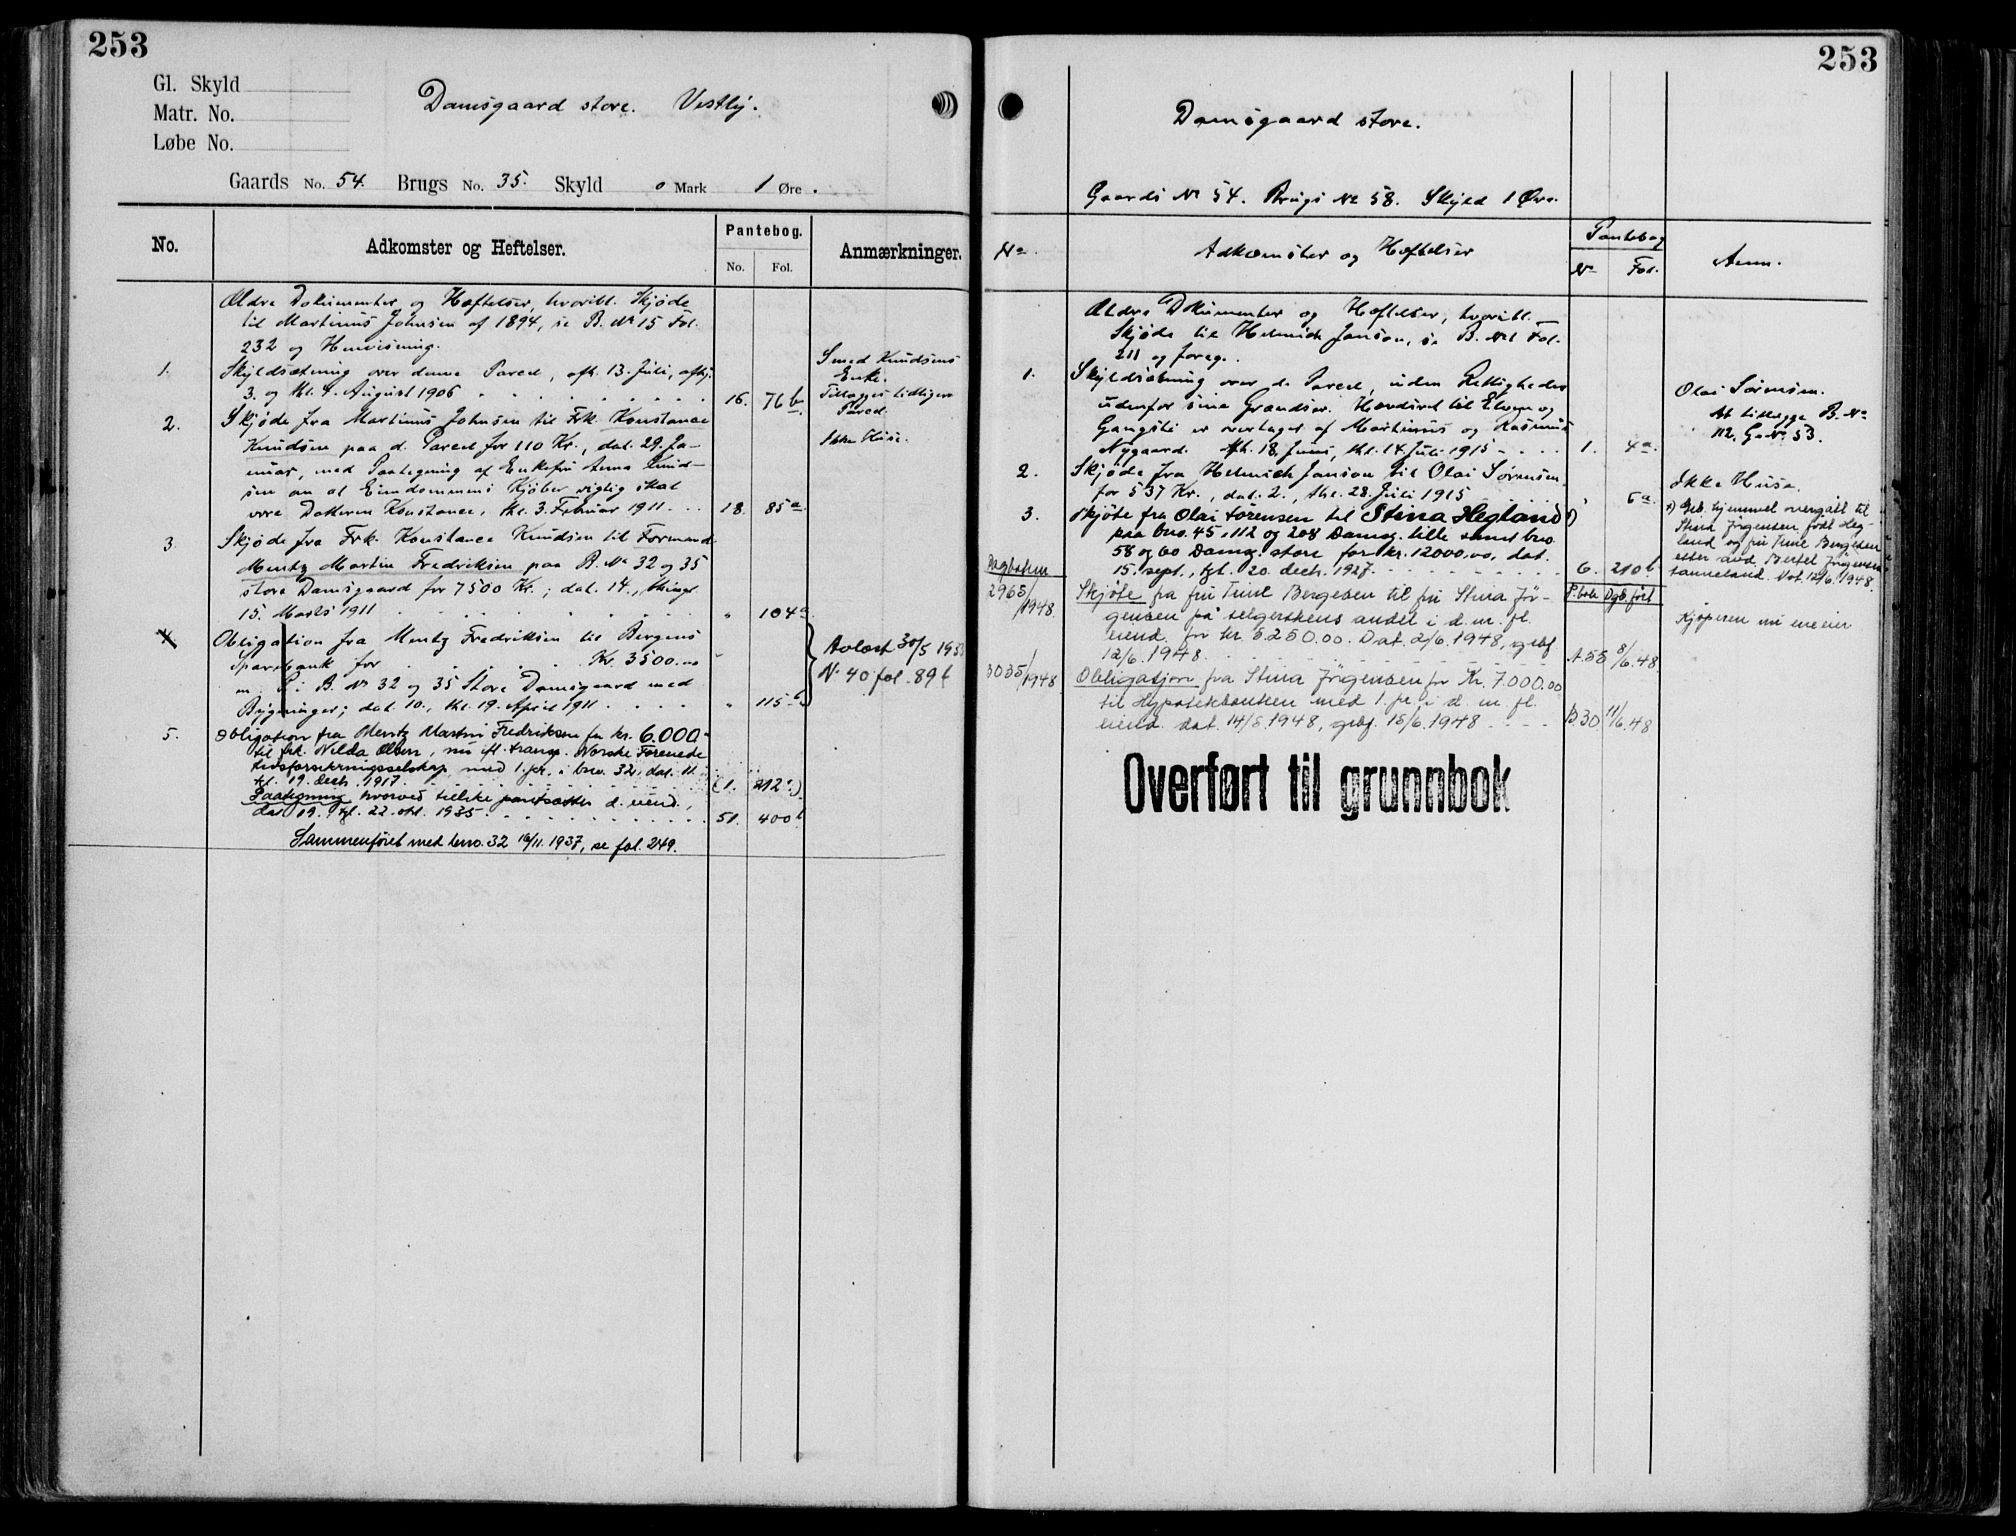 253
Gl. Skyld
Matr. No.
Løbe No.
Damsgaard store. Vestby.
Gaards No. 54. Brugs No. 35. Skyld 0 Mark 1 Øre.
No.
Adkomster og Heftelser.
Pantebog.
No. Fol.
Anmærkninger.
Ældre Dokumenter og Heftelser, hvoribl. Skjøde
til Martinus Johnsen af 1894, se B. No 15 Fol.
232 og Henvisning.
1. Skyldsætning over denne Parcel, afh. 13. Juli, afhj.
3. og thl. 4. August 1906 16. 76 b
Smed Knudsens
Enke.
Tillægges tidligere
Parcel.
2. Skjøde fra Martinus Johnsen til Frk. Konstance
Knudsen paa d. Parcel for 110 Kr., dat. 29. Ja-
nuar, med Paategning af Enkefru Anna Knud-
sen om at Eiendommens Kjøber rigtig skal
være Datteren Konstance, thl. 3. Februar 1911 18. 85 a
Ikke Huse.
3. Skjøde fra Frk. Konstance Knudsen til Formand
Mentz Martin Fredriksen paa B. No 32 og 35
store Damsgaard for 7500 Kr.; dat. 14., thingl.
15. Marts 1911 " 104 a
4 Obligation fra Mentz Fredriksen til Bergens
Sparebank for Kr. 3500.00
m. P. i B. No 32 og 35 Store Damsgaard med
Bygninger; dat. 10., thl. 19. April 1911 " 115 b
Avlæst 30/5
N. 40 fol. 89 b
5. Obligation fra Mentz Martin Fredriksen for kr. 6.000.-
til frk. Nilda Olsen, nu ifl. transp. Norske Forenede
Livsforsikringsselskap, med 1. pr. i bno. 32, dat. 11.
tgl. 19. decb. 1917 (1. 212 )
Paategning hvorved tillike pantsættes d. eiend.,
dat. 19., tgl. 22. okt. 1935 51. 400 b
Sammenføiet med bno. 32 16/11. 1937, se fol. 249.
253
Damsgaard store.
Gaards No 54. Brugs No 58. Skyld 1 Øre.
No.
Adkomster og Heftelser
Pantebog
No Fol.
Anm.
Ældre Dokumenter og Heftelser, hvoribl.
Skjøde til Helmich Janson, se B. No 1 Fol.
211 og foreg.
1. Skyldsætning over d. Parcel, uden Rettigheder
udenfor sine Grændser. Hovedsret til Elven og
Gangsti er overtaget af Martinus og Rasmus
Nygaard. Afh. 18. Juni, thl. 14. Juli 1915 1. 4 a.
Olai Sørensen.
At tillægge B. No
112, G. No. 53.
2. Skjøde fra Helmich Janson til Olai Sørensen
for 537 Kr., dat. 2., thl. 28. Juli 1915 " 6 a.
Ikke Huse.
3. Skjøte fra Olai Sørensen til Stina Hegland x)
paa bno. 45, 112 og 208 Damsg. lille samt bno
58 og 60 Damsg. store for kr. 12000.00, dat.
15. sept., tgl. 20. decb. 1927 6. 210 b
x) Geb. hjemmel overgått til
Stina Jørgensen født Heg-
land og fru Bergesen
etter avd. Bertel Jørgensen
Not. 12/6 1948.
Dagboken
P.bok Dgb.ført
2965/1948 Skjøte fra fru Bergesen til fru Stina Jør-
gensen på selgerskens andel i d. m. fl.
eiend. for kr. 5.250.00. Dat. 2/6. 1948, grbf.
12/6. 1948 A.55 8/6.48
Kjøperen nu eneeier
3035/1948 Obligasjon fra Stina Jørgensen for Kr. 7.000.00
til Hypotekbanken med 1. pr. i d. m. fl.
eiend. dat. 14/5 1948, grbf. 15/6. 1948 B 30 11/6.48
Overført til grunnbok